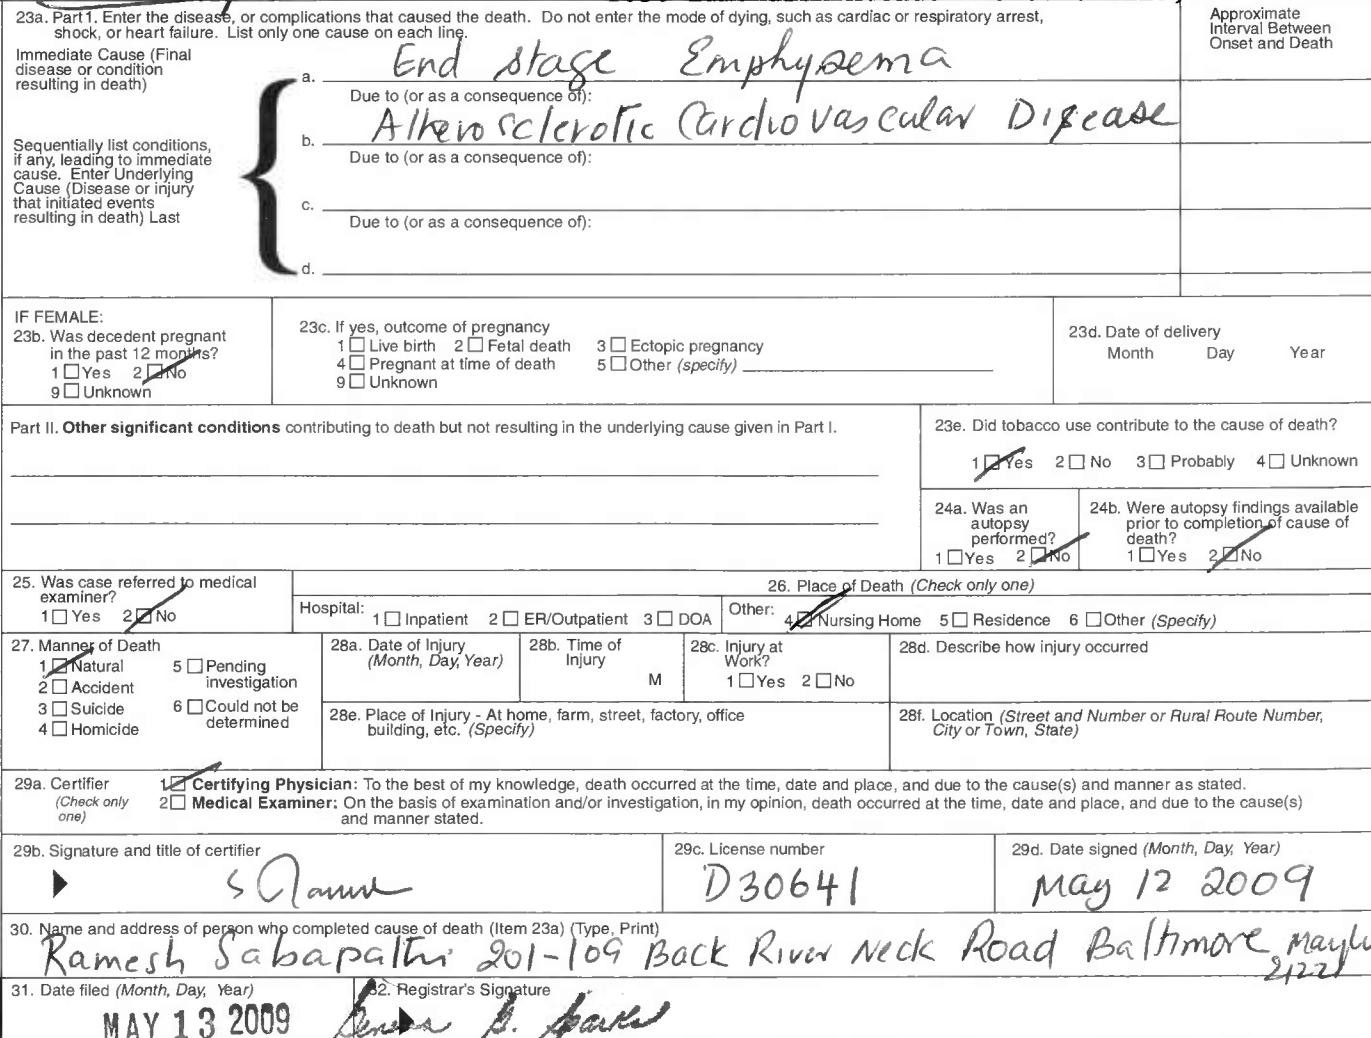 23a. Part1. Enter the disease, or complications that caused the death. Do not enter the mode of dying, such as cardiac or respiratory arrest,
shock, or heart failure. List only one cause on each line.
Approximate
Interval Between
Onset and Death
Immediate Cause (Final
disease or condition
resulting in death)
a. End stage Emphysema
Due to (or as a consequence of):
Sequentially list conditions,
if any, leading to immediate
cause. Enter Underlying
Cause (Disease or injury
that initiated events
resulting in death) Last
b. Atherosclerotic Cardiovascular Disease
Due to (or as a consequence of):
c.
Due to (or as a consequence of):
d.
IF FEMALE:
23b. Was decedent pregnant
in the past 12 months?
1 Yes 2 No
9 Unknown
23c. If yes, outcome of pregnancy
1 Live birth 2 Fetal death 3 Ectopic pregnancy
4 Pregnant at time of death 5 Other (specify)
9 Unknown
23d. Date of delivery
Month Day Year
Part II. Other significant conditions contributing to death but not resulting in the underlying cause given in Part I.
23e. Did tobacco use contribute to the cause of death?
1 Yes 2 No 3 Probably 4 Unknown
24a. Was an
autopsy
performed?
1 Yes 2 No
24b. Were autopsy findings available
prior to completion of cause of
death?
1 Yes 2 No
25. Was case referred to medical
examiner?
1 Yes 2 No
26. Place of Death (Check only one)
Hospital: 1 Inpatient 2 ER/Outpatient 3 DOA
Other: 4 Nursing Home 5 Residence 6 Other (Specify)
27. Manner of Death
1 Natural 5 Pending
investigation
2 Accident
3 Suicide 6 Could not be
determined
4 Homicide
28a. Date of Injury
(Month, Day, Year)
28b. Time of
Injury
M
28c. Injury at
Work?
1 Yes 2 No
28d. Describe how injury occurred
28e. Place of Injury - At home, farm, street, factory, office
building, etc. (Specify)
28f. Location (Street and Number or Rural Route Number,
City or Town, State)
29a. Certifier
(Check only
one)
1 Certifying Physician: To the best of my knowledge, death occurred at the time, date and place, and due to the cause(s) and manner as stated.
2 Medical Examiner: On the basis of examination and/or investigation, in my opinion, death occurred at the time, date and place, and due to the cause(s)
and manner stated.
29b. Signature and title of certifier
29c. License number
D30641
29d. Date signed (Month, Day, Year)
May 12 2009
30. Name and address of person who completed cause of death (Item 23a) (Type, Print)
Ramesh Sabapathi 201-109 Back River Neck Road Baltimore
21221
31. Date filed (Month, Day, Year)
MAY 13 2009
32. Registrar's Signature